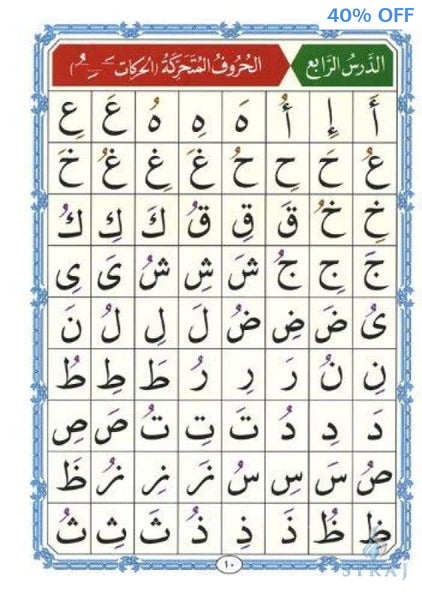 40% OFF
الدَّرْسُ الرَّابِع
الحُرُوفُ المُتَحَرِّكَةُ (الحَرَكات ـَـِـُ)
أَ إِ أُ هَ هِ هُ عَ عِ
عُ حَ حِ حُ غَ غِ غُ خَ
خِ خُ قَ قِ قُ كَ كِ كُ
جَ جِ جُ شَ شِ شُ یَ یِ
یُ ضَ ضِ ضُ لَ لِ لُ نَ
نِ نُ رَ رِ رُ طَ طِ طُ
دَ دِ دُ تَ تِ تُ صَ صِ
صُ سَ سِ سُ زَ زِ زُ ظَ
ظِ ظُ ذَ ذِ ذُ ثَ ثِ ثُ
١٠
SIRAJ